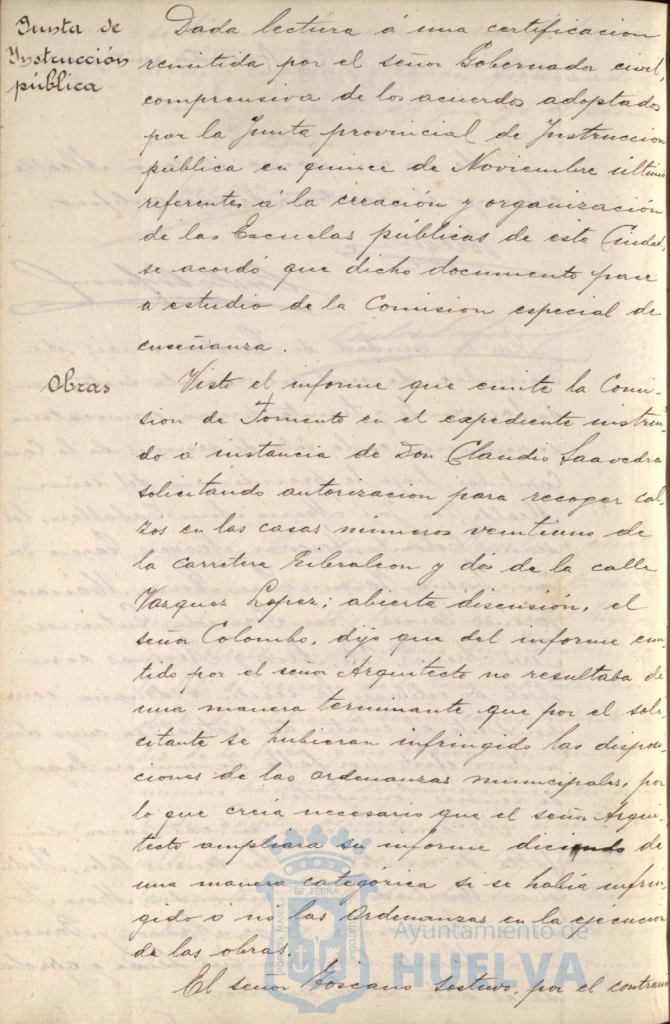 Junta de
Instrucción
pública
Dada lectura á una certificacion
remitida por el señor Gobernador civil
comprensiva de los acuerdos adoptados
por la Junta provincial de Instruccion
pública en quince de Noviembre último
referentes á la creación y organización
de las Escuelas públicas de esta Ciudad,
se acordó que dicho documento pase
á estudio de la Comision especial de
enseñanza.
Obras
Visto el informe que emite la Comi-
sion de Fomento en el expediente instrui-
do á instancia de Don Claudio Saavedra
solicitando autorizacion para recoger cal-
zos en las casas números veintiuno de
la carretera Gibraleon y dos de la calle
Vazquez Lopez; abierta discusión, el
señor Colombo, dijo que del informe emi-
tido por el señor Arquitecto no resultaba de
una manera terminante que por el soli-
citante se hubieran infringido las disposi-
ciones de las ordenanzas municipales, por
lo que creia necesario que el señor Arqui-
tecto ampliara su informe diciendo de
una manera categórica si se habia infrin-
gido o no las Ordenanzas en la ejecucion
de las obras.
El señor Toscano sostuvo, por el contrario
Ayuntamiento de
HUELVA